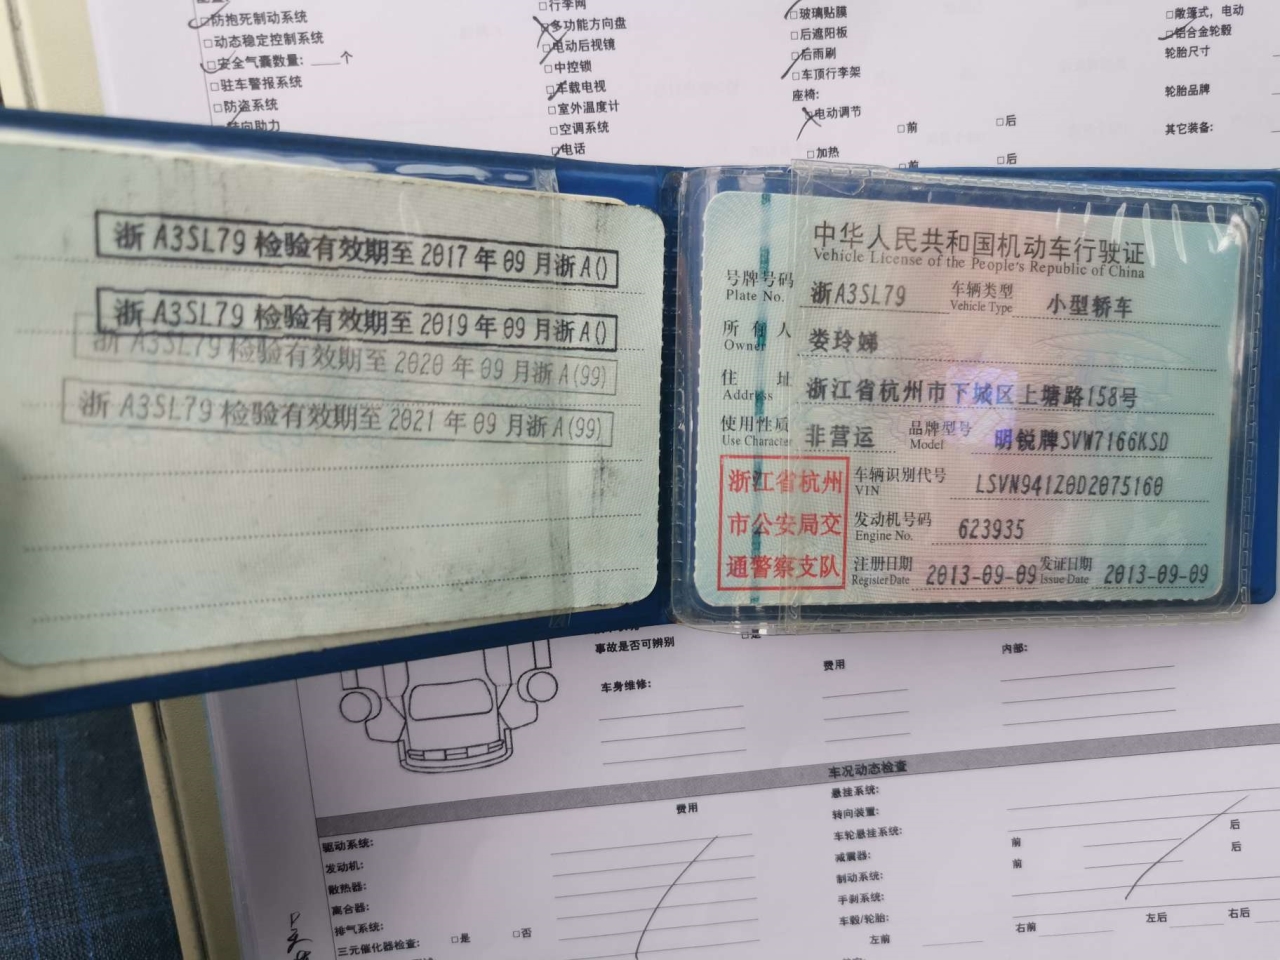 □防抱死制动系统
□动态稳定控制系统
□安全气囊数量:____个
□驻车警报系统
□防盗系统
转向助力
□行李网
□多功能方向盘
□电动后视镜
□中控锁
□车载电视
□室外温度计
□空调系统
□电话
□玻璃贴膜
□后遮阳板
□后雨刷
□车顶行李架
座椅:
□电动调节
□前 □后
□加热
□前 □后
□敞篷式，电动
□铝合金轮毂
轮胎尺寸
轮胎品牌
其它装备:
浙A3SL79检验有效期至2017年09月浙A()
浙A3SL79检验有效期至2019年09月浙A()
浙A3SL79检验有效期至2020年09月浙A(99)
浙A3SL79检验有效期至2021年09月浙A(99)
中华人民共和国机动车行驶证
Vehicle License of the People's Republic of China
号牌号码 浙A3SL79 车辆类型 小型轿车
Plate No. Vehicle Type
所有人 娄玲娣
Owner
住址 浙江省杭州市下城区上塘路158号
Address
使用性质 非营运 品牌型号 明锐牌SVW7166KSD
Use Character Model
浙江省杭州
市公安局交
通警察支队
车辆识别代号 LSVN941Z0D2075160
VIN
发动机号码 623935
Engine No.
注册日期 2013-09-09 发证日期 2013-09-09
Register Date Issue Date
事故是否可辨别 □是
车身维修:
费用
内部:
车况动态检查
费用
驱动系统:
发动机:
散热器:
离合器:
排气系统:
三元催化器检查: □是 □否
悬挂系统:
转向装置:
车轮悬挂系统: 前 后
减震器: 前 后
制动系统:
手刹系统:
车毂/轮胎:
左前 右前 左后 右后